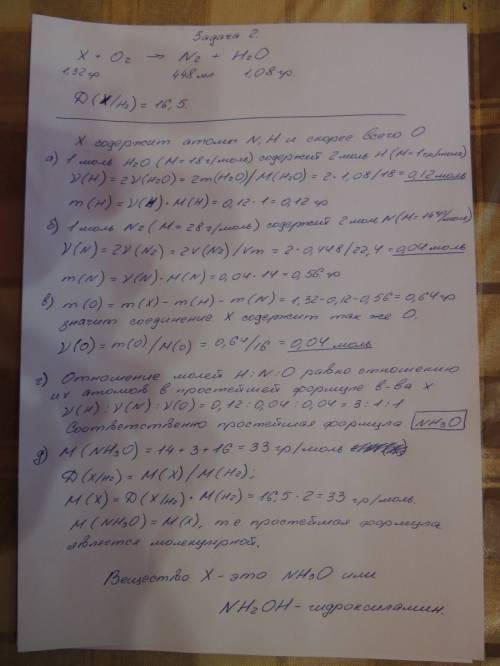 Задача 2.
X + O2 → N2 + H2O
1,32 гр 448 мл 1,08 гр.
D(X/H2) = 16,5.
X содержит атомы N, H и скорее всего O
а) 1 моль H2O (M=18г/моль) содержит 2 моль H (M=1гр/моль)
ν(H) = 2ν(H2O) = 2m(H2O)/M(H2O) = 2·1,08/18 = 0,12 моль
m(H) = ν(H)·M(H) = 0,12·1 = 0,12 гр
б) 1 моль N2 (M=28г/моль) содержит 2 моль N (M=14г/моль)
ν(N) = 2ν(N2) = 2V(N2)/Vm = 2·0,448/22,4 = 0,04 моль
m(N) = ν(N)·M(N) = 0,04·14 = 0,56 гр
в) m(O) = m(X) - m(H) - m(N) = 1,32-0,12-0,56 = 0,64 гр
значит соединение X содержит так же O.
ν(O) = m(O)/M(O) = 0,64/16 = 0,04 моль
г) Отношение молей H:N:O равно отношению
их атомов в простейшей формуле в-ва X
ν(H):ν(N):ν(O) = 0,12:0,04:0,04 = 3:1:1
Соответственно простейшая формула NH3O
д) M(NH3O) = 14+3+16 = 33 гр/моль
D(X/H2) = M(X)/M(H2);
M(X) = D(X/H2)·M(H2) = 16,5·2 = 33 гр/моль.
M(NH3O) = M(X), т.е простейшая формула
является молекулярной.
Вещество X - это NH3O или
NH2OH - гидроксиламин.